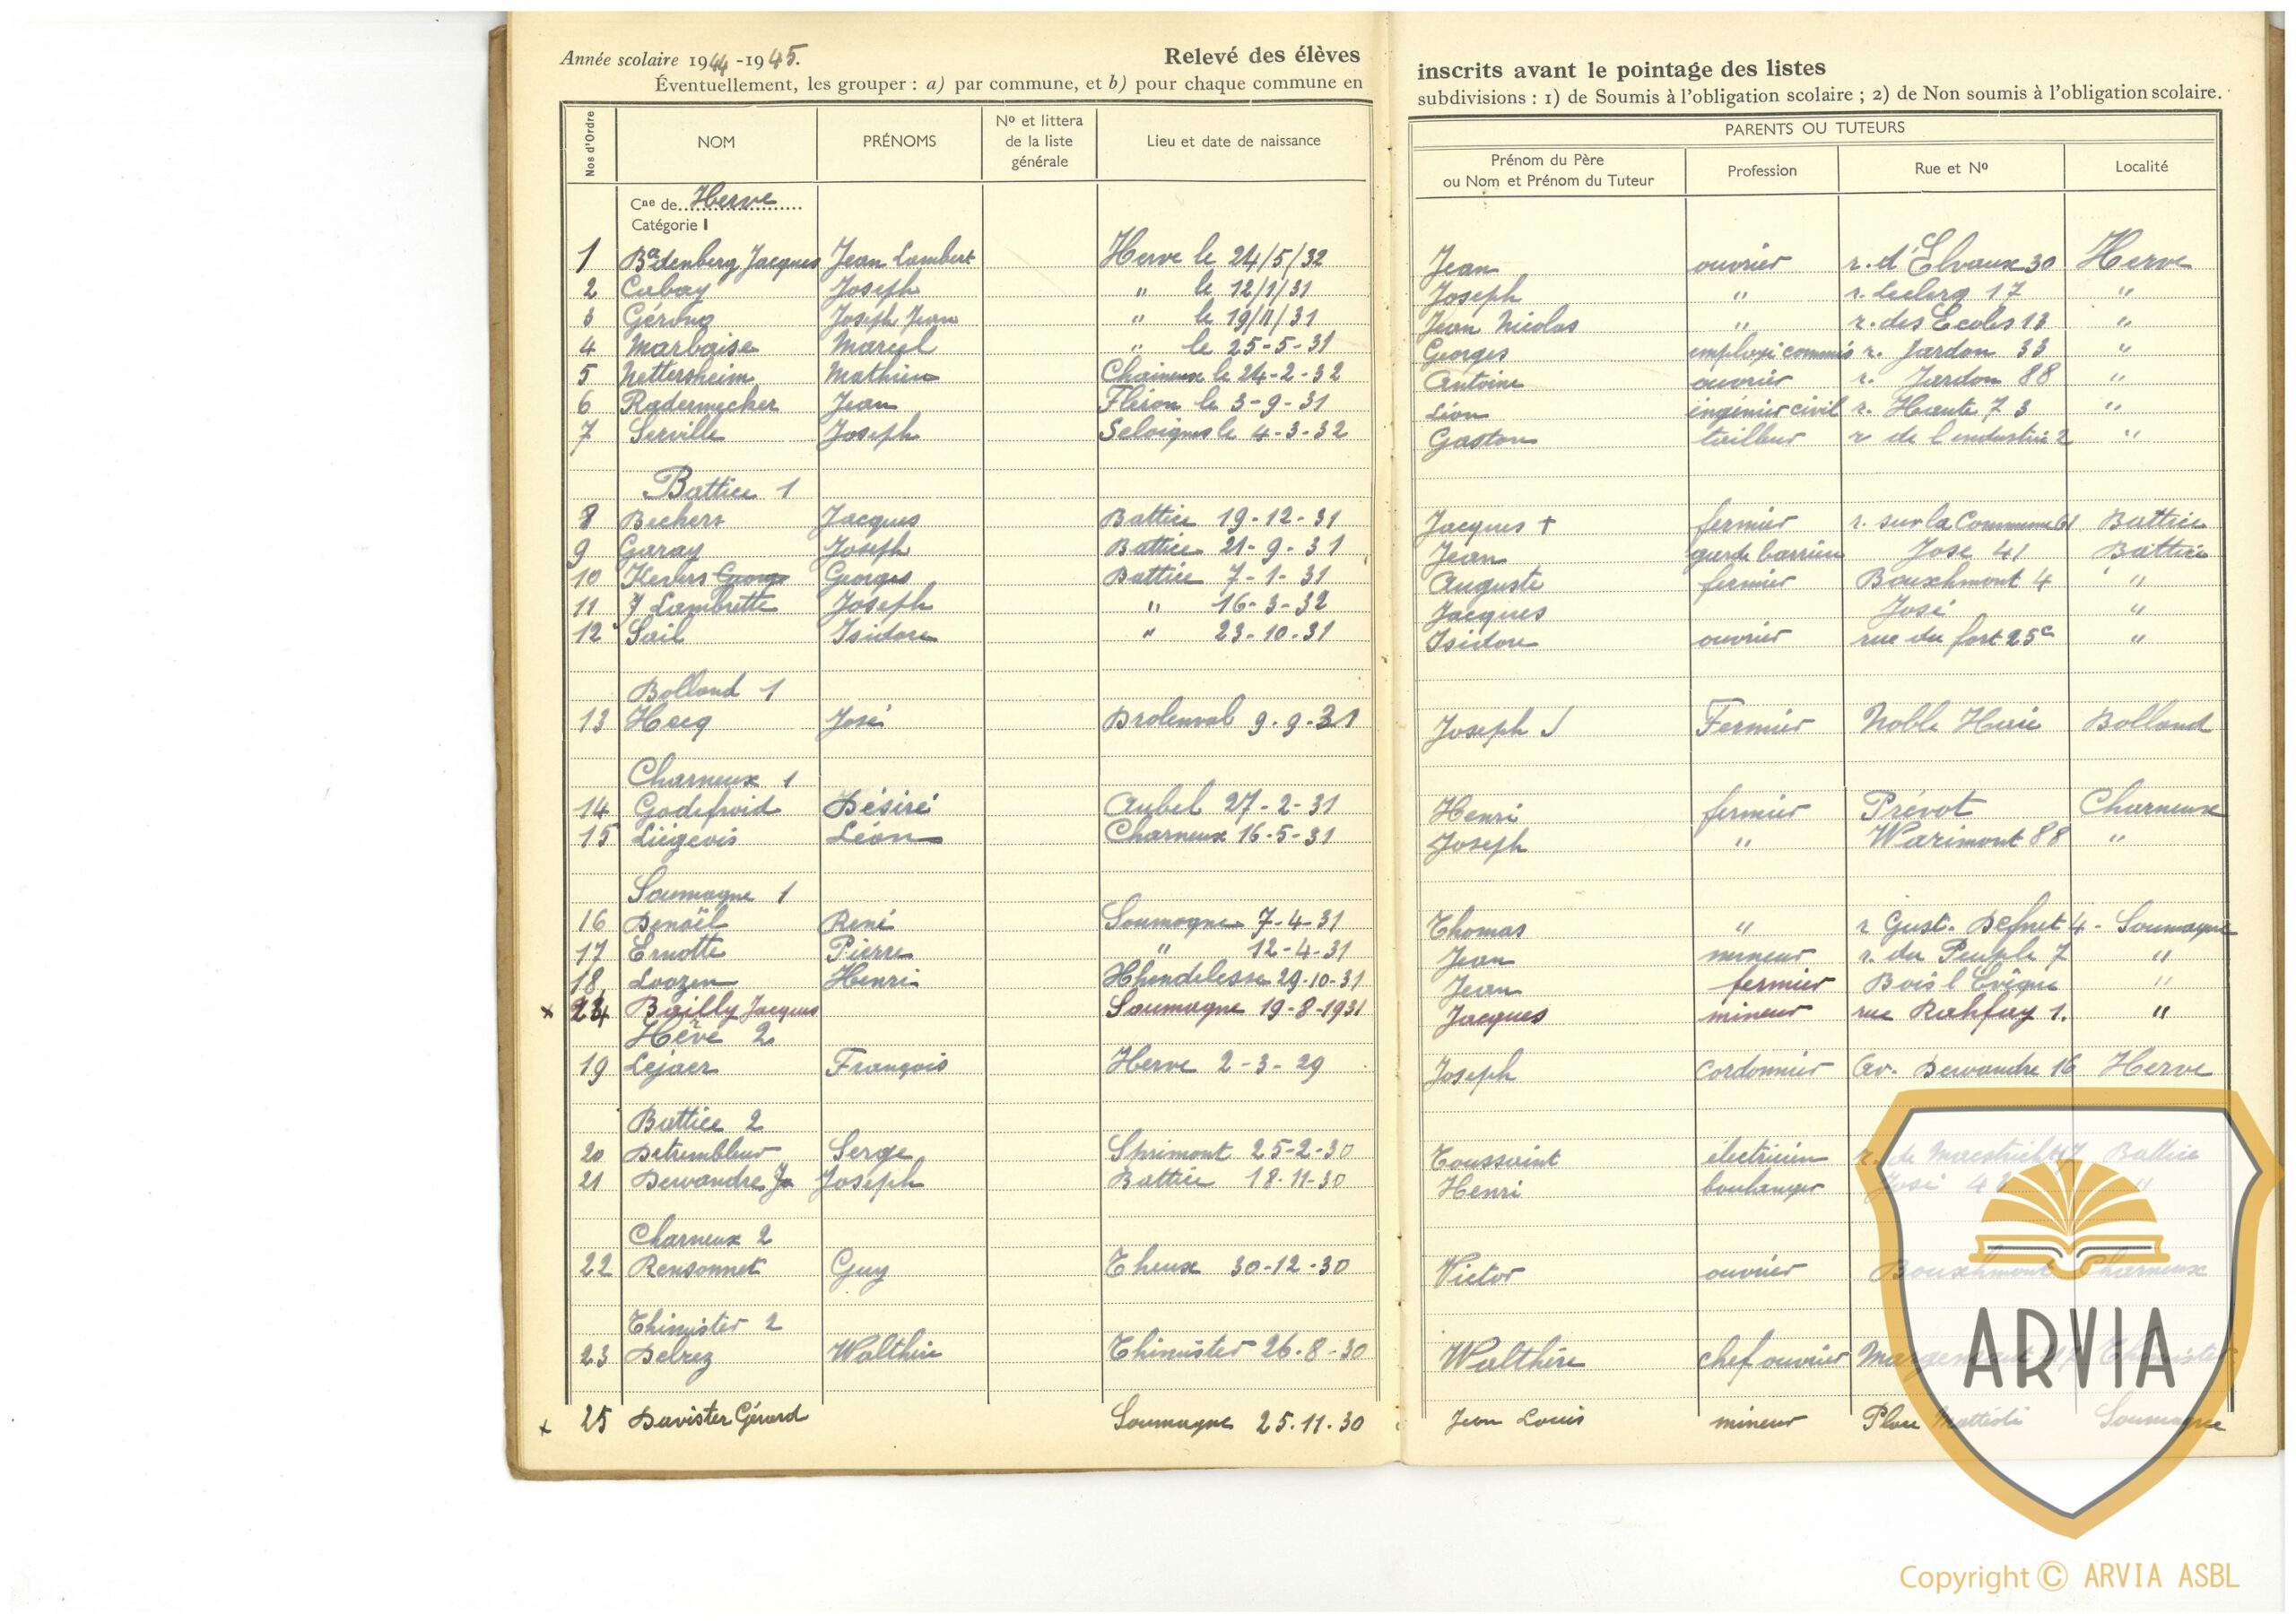 Année scolaire 1944-1945. Relevé des élèves
Éventuellement, les grouper : a) par commune, et b) pour chaque commune en
inscrits avant le pointage des listes
subdivisions : 1) de Soumis à l'obligation scolaire ; 2) de Non soumis à l'obligation scolaire.
PARENTS OU TUTEURS
Nos d'Ordre NOM PRÉNOMS Nº et littera de la liste générale Lieu et date de naissance Prénom du Père ou Nom et Prénom du Tuteur Profession Rue et Nº Localité
Cne de Herve
Catégorie I
1 Badenberg Jacques Jean Lambert Herve le 24/5/32 Jean ouvrier r. d'Elvaux 30 Herve
2 Cabay Joseph " le 12/1/31 Joseph " r. Leclerq 17 "
3 Joseph Jean " le 19/11/31 Jean Nicolas " r. des Ecoles 13 "
4 Marbaise Marcel " le 25-5-31 Georges employé commis r. Jardon 33 "
5 Nettersheim Mathieu Chaineux le 24-2-32 Antoine ouvrier r. Jardon 88 "
6 Radermecker Jean Fléron le 3-9-31 Léon ingénieur civil r. Haute 73 "
7 Serville Joseph Seloignes le 4-3-32 Gaston tailleur r de l'industrie 2 "
Battice 1
8 Beckers Jacques Battice 19-12-31 Jacques + fermier r. sur la Commune 61 Battice
9 Garay Joseph Battice 21-9-31 Jean garde barrière José 41 Battice
10 Kevers Georges Georges Battice 7-1-31 Auguste fermier Bouxhmont 4 "
11 J Lambrette Joseph " 16-3-32 Jacques José "
12 Sail Isidore " 23-10-31 Isidore ouvrier rue du fort 25c "
Bolland 1
13 Hecq José Drolenval 9-9-31 Joseph J Fermier Noble Haie Bolland
Charneux 1
14 Godefroid Désiré Aubel 27-2-31 Henri fermier Prévot Charneux
15 Liégeois Léon Charneux 16-5-31 Joseph " Warimont 88 "
Soumagne 1
16 Denoël René Soumagne 7-4-31 Thomas " r Gust. Defnet 4 - Soumagne
17 Ernotte Pierre " 12-4-31 Jean mineur r. du Peuple 7 "
18 Loozen Henri Hhendelesse 29-10-31 Jean fermier Bois l'Evêque "
x 24 Bailly Jacques Soumagne 19-8-1931 Jacques mineur rue Rahfay 1. "
Herve 2
19 Lejaer François Herve 2-3-29 Joseph Cordonnier Av. Dewandre 16 Herve
Battice 2
20 Detrembleur Serge Sprimont 25-2-30 Toussaint électricien r. de Maestricht 47 Battice
21 Dewandre Jo Joseph Battice 18-11-30 Henri boulanger José "
Charneux 2
22 Rensonnet Guy Theux 30-12-30 Victor ouvrier Bouxhmont Charneux
Thimister 2
23 Delrez Walthère Thimister 26-8-30 Walthère chef ouvrier Thimister
x 25 Davister Gérard Soumagne 25.11.30 Jean Louis mineur Place Soumagne
ARVIA
Copyright © ARVIA ASBL